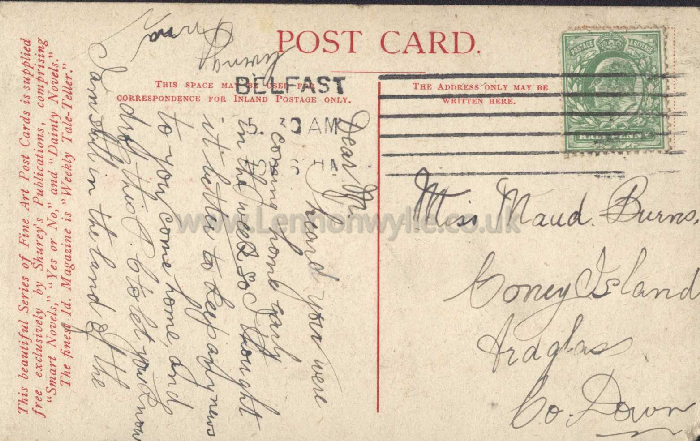 POST CARD.
THIS SPACE MAY BE USED FOR
CORRESPONDENCE FOR INLAND POSTAGE ONLY.
THE ADDRESS ONLY MAY BE
WRITTEN HERE.
BELFAST
5. 30 AM
HALFPENNY
Miss Maud. Burns,
Coney Island
Ardglas
Co. Down
Dear M
I heard you were
coming home early
in the week so I thought
it better to keep any news
to you come home, and
drop this P.C. to let you know
I am still in the land of the
This beautiful Series of Fine Art Post Cards is supplied
free exclusively by Shurey's Publications, comprising
"Smart Novels," "Yes or No," and "Dainty Novels."
The finest 1d. Magazine is "Weekly Tale-Teller."
www.Lemonwylie.co.uk